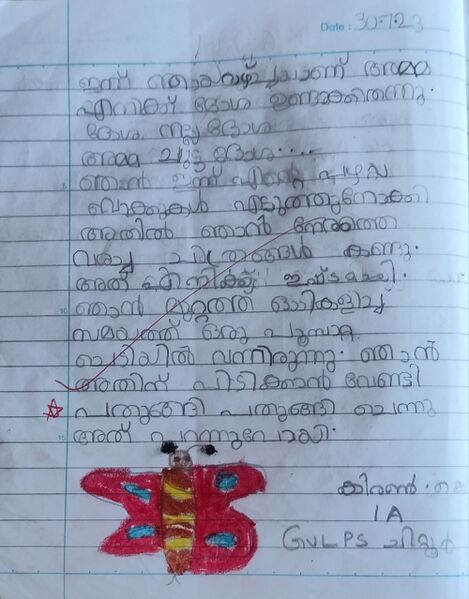 Date : 30-7-23
ഇന്ന് ഞായറാഴ്ചയാണ് അമ്മ
എനിക്ക് ദോശ ഉണ്ടാക്കിതന്നു.
ദോശ നല്ല ദോശ
അമ്മ ചുട്ട ദോശ.....
ഞാൻ ഇന്ന് എന്റെ പഴയ
ബുക്കുകൾ എടുത്തുനോക്കി
അതിൽ ഞാൻ നേരത്തെ
വരച്ച ചിത്രങ്ങൾ കണ്ടു.
അത് എനിക്ക് ഇഷ്ടമായി.
ഞാൻ മുറ്റത്ത് ഓടികളിച്ച
സമയത്ത് ഒരു പൂമ്പാറ്റ
ചെടിയിൽ വന്നിരുന്നു. ഞാൻ
അതിനെ പിടിക്കാൻ വേണ്ടി
പതുങ്ങി പതുങ്ങി ചെന്നു
അത് പറന്നുപോയി.
കിരൺ. കെ
1A
GVLPS ചിറ്റൂർ